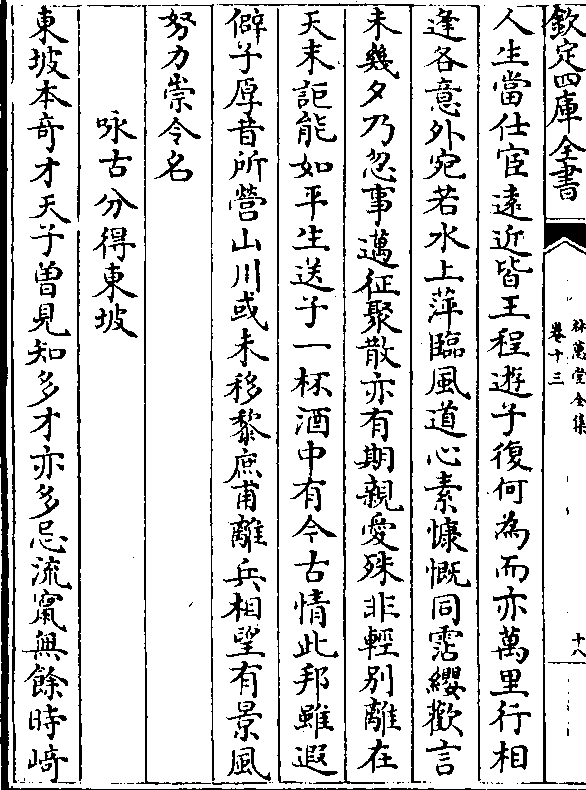 欽定四庫全書
林蕙堂全集
卷十三
十八
人生當仕宦遠近皆王程遊子復何為而亦萬里行相
逢各意外宛若水上萍臨風道心素慷慨同霑纓歡言
未幾夕乃忽事邁征聚散亦有期親愛殊非輕別離在
天末詎能如平生送子一杯酒中有今古情此邦雖遐
僻子厚昔所營山川或未移黎庶甫離兵相望有景風
努力崇令名
咏古分得東坡
東坡本奇才天子曽見知多才亦多忌流竄無餘時﨑